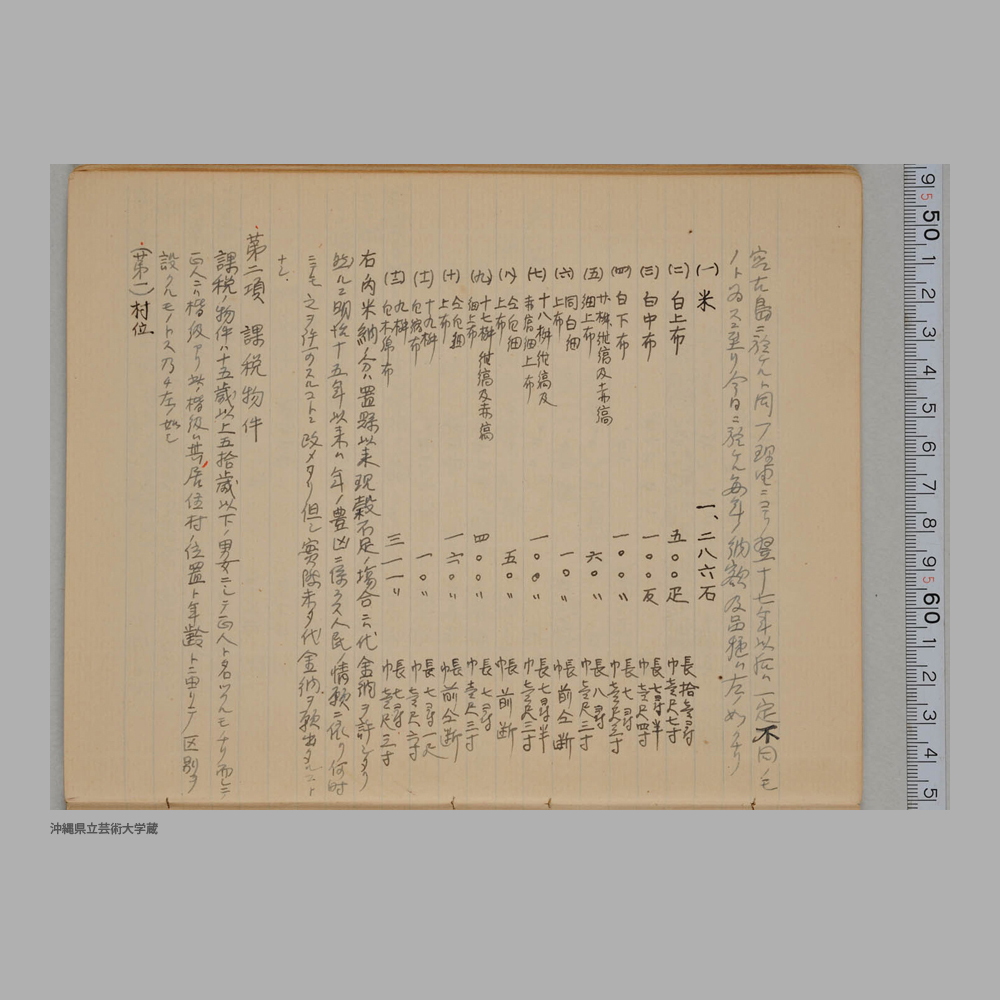 宮古島ニ於ケルト同一ノ理由ニヨリ翌十七年以后ハ一定不同モ
ノトナスニ至リ今日ニ於ケル毎年ノ納額及品種ハ左ノ如クナリ
(一) 米 一、二八六石
(二) 白上布 五〇〇疋 長拾壱尋 巾壱尺七寸
(三) 白中布 一〇〇反 長七尋半 巾壱尺四寸
(四) 白下布 一〇〇〃 長七尋 巾壱尺三寸
(五) 廿桝紺縞及赤縞細上布 六〇〃 長八尋 巾壱尺三寸
(六) 同白細上布 一〇〃 帳前仝断
(七) 十八桝紺縞及赤縞細上布 一〇〇〃 長七尋半 巾壱尺三寸
(八) 仝白細上布 五〃 帳前断
(九) 十七桝紺縞及赤縞細上布 四〇〇〃 長七尋 巾壱尺三寸
(十) 仝白細上布 一六〇〃 帳前仝断
(十一) 十九桝白縮布 一〇〃 長七尋一尺 巾壱尺六寸
(十二) 九桝白木綿布 三一一〃 長七尋 巾壱尺三寸
右ノ内米納ノ分ハ置県以来現穀不足ノ場合ニハ代金納ヲ許シタリ
然ルニ明治十五年以来ハ年ノ豊凶ニ係ラス人民ノ情願ニ依リ何時
ニテモ之ヲ許可スルコトニ改メタリ但シ実際未タ代金納ヲ願出タルコト
ナシ
第二項 課税物件
課税ノ物件ハ十五歳以上五拾歳以下ノ男女ニシテ正人ト名ツクルモノナリ而シテ
正人ニハ階級アリ此ノ階級ハ其居住村ノ位置ト年齢トニ由リテ区別ヲ
設クルモノトス乃チ左ノ如シ
(第一) 村位
9 5 50 1 2 3 4 5 6 7 8 9 5 60 1 2 3 4 5
沖縄県立芸術大学蔵